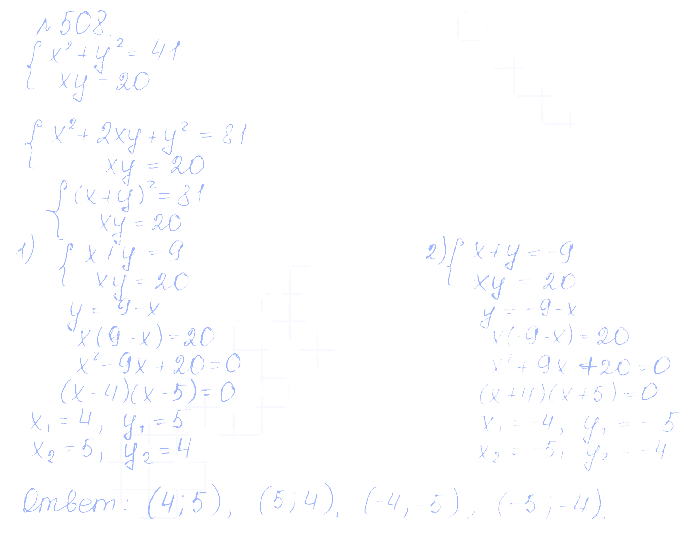 №508.
{ x² + y² = 41
xy = 20
{ x² + 2xy + y² = 81
xy = 20
{ (x+y)² = 81
xy = 20
1) { x + y = 9
xy = 20
y = 9 - x
x(9-x) = 20
x² - 9x + 20 = 0
(x-4)(x-5) = 0
x₁ = 4, y₁ = 5
x₂ = 5, y₂ = 4
2) { x + y = -9
xy = 20
y = -9 - x
x(-9-x) = 20
x² + 9x + 20 = 0
(x+4)(x+5) = 0
x₁ = -4, y₁ = -5
x₂ = -5, y₂ = -4
Ответ: (4;5), (5;4), (-4, 5), (-5;-4).